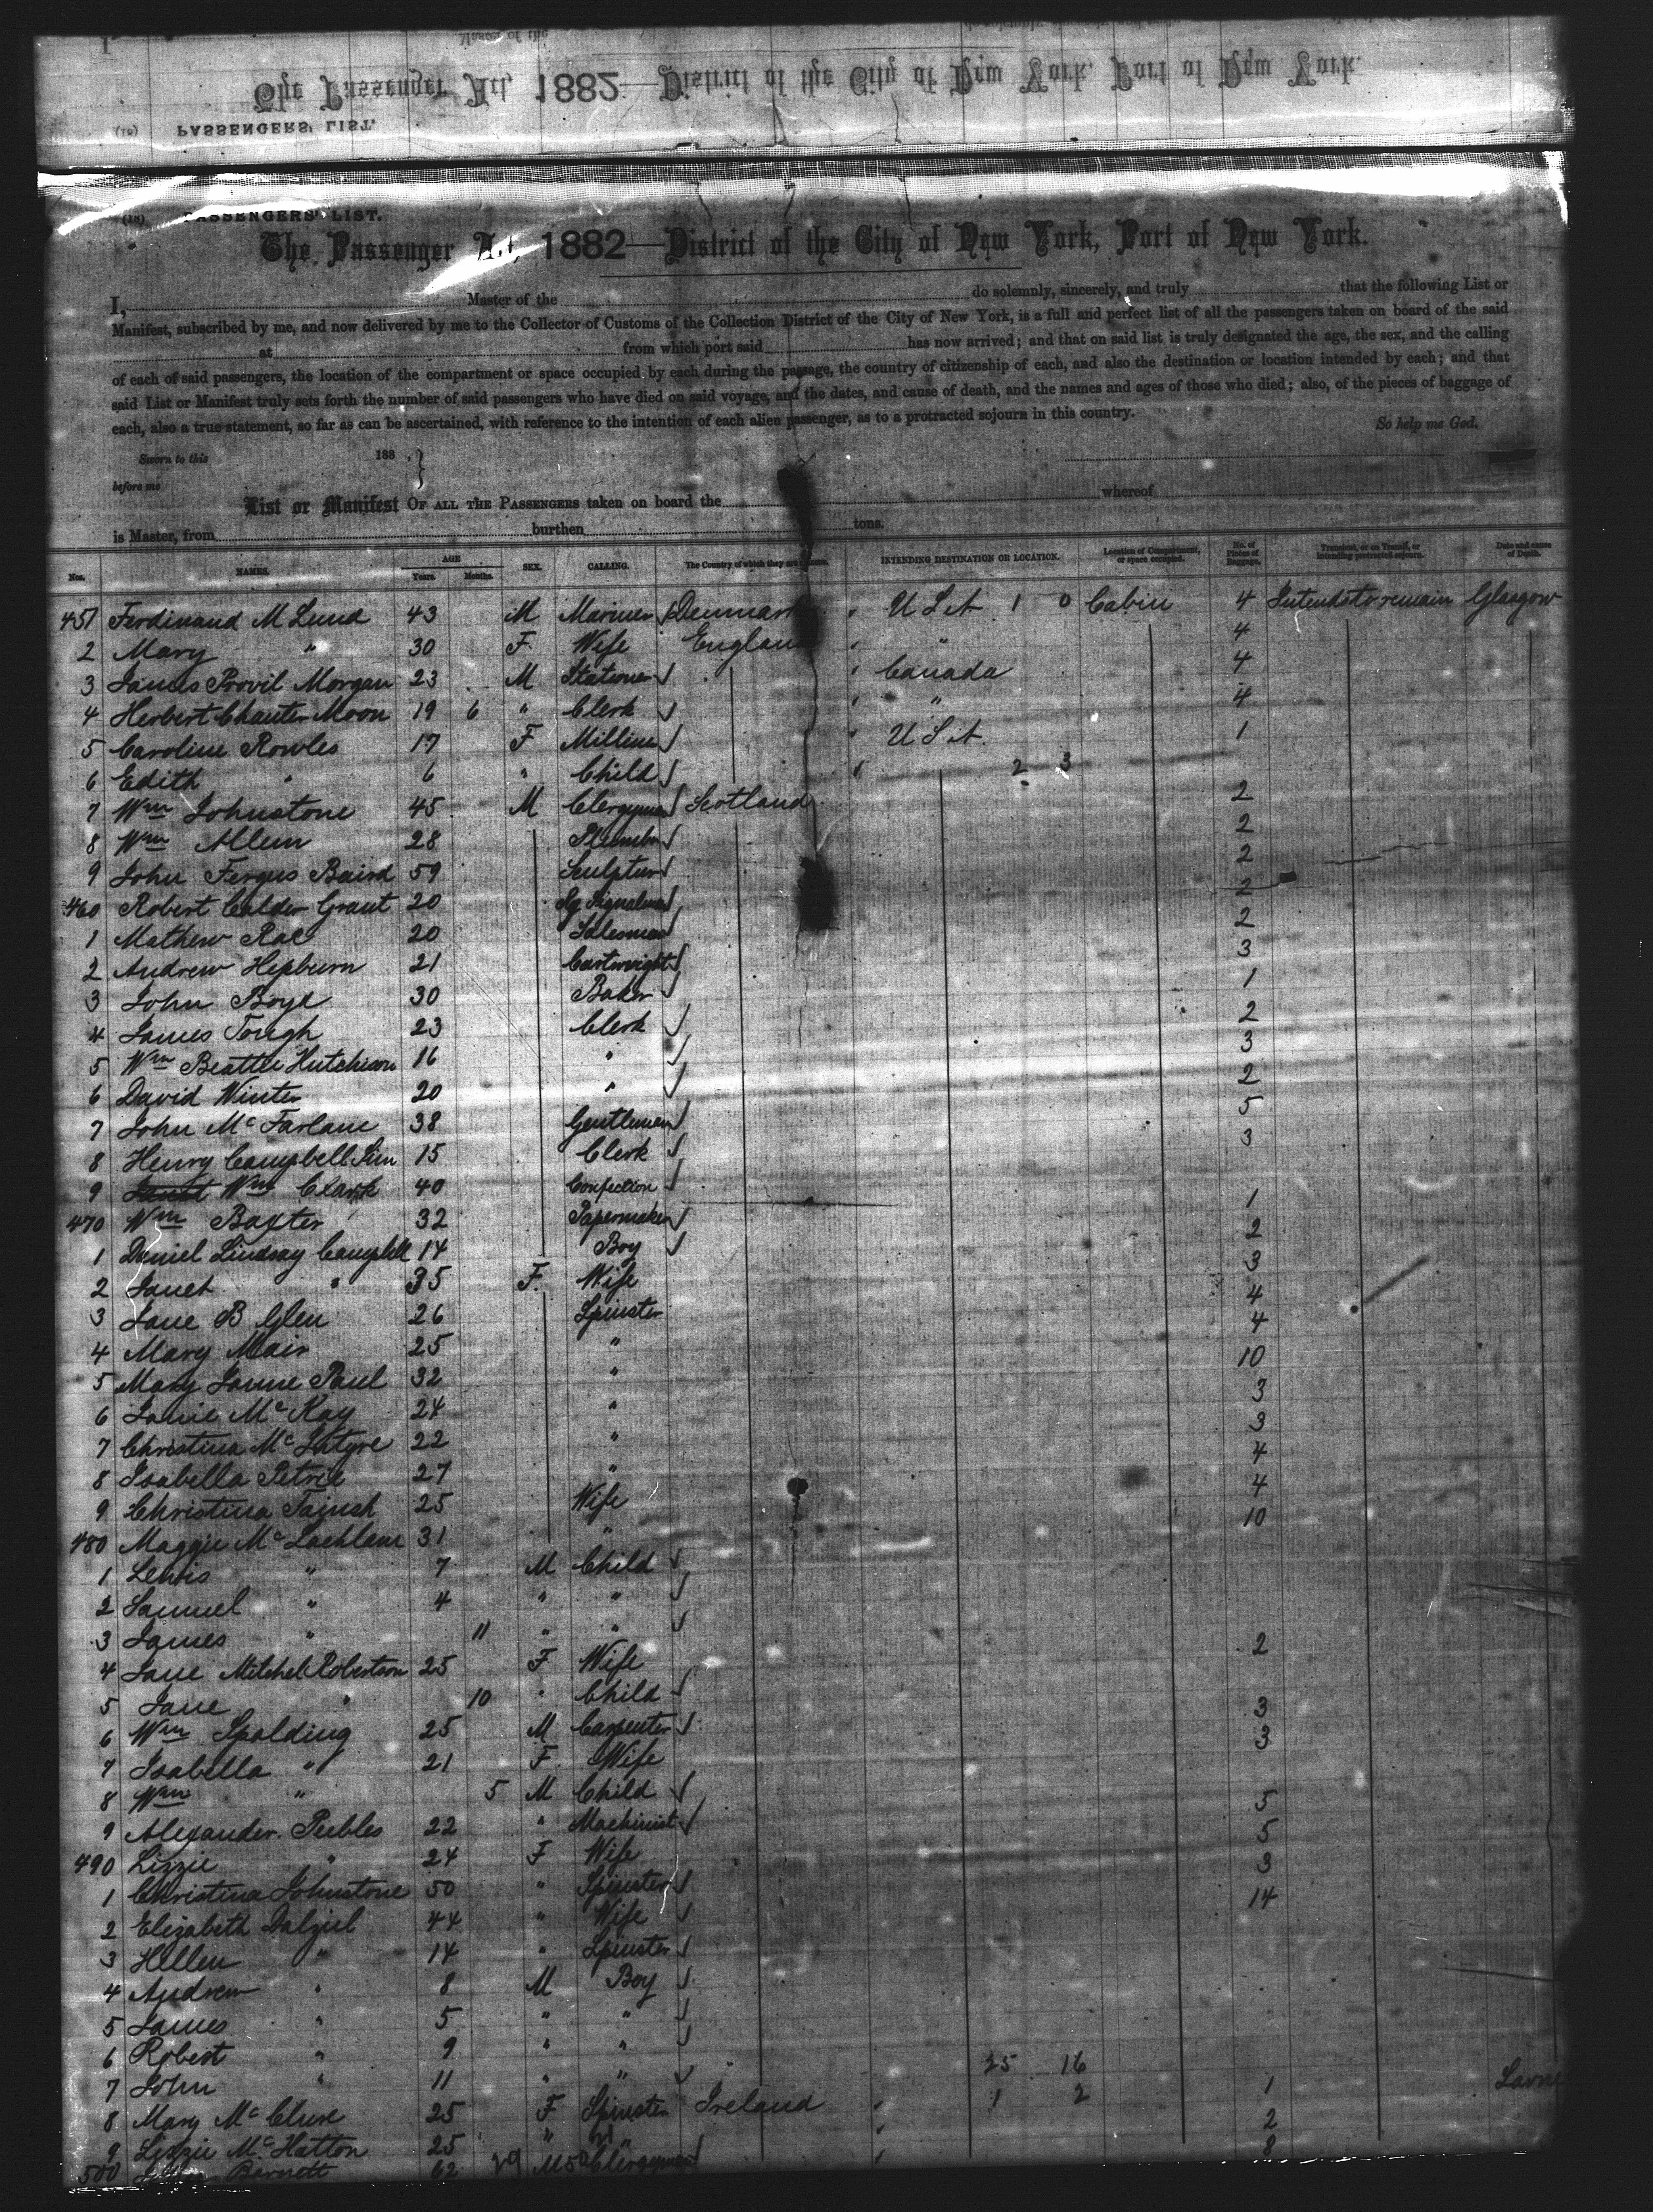 The Passenger Act, 1882—District of the City of New York, Port of New York.
PASSENGERS' LIST.
(18) PASSENGERS' LIST.
The Passenger Act, 1882—District of the City of New York, Port of New York.
I, Master of the do solemnly, sincerely, and truly that the following List or
Manifest, subscribed by me, and now delivered by me to the Collector of Customs of the Collection District of the City of New York, is a full and perfect list of all the passengers taken on board of the said
at from which port said has now arrived; and that on said list is truly designated the age, the sex, and the calling
of each of said passengers, the location of the compartment or space occupied by each during the passage, the country of citizenship of each, and also the destination or location intended by each; and that
said List or Manifest truly sets forth the number of said passengers who have died on said voyage, and the dates, and cause of death, and the names and ages of those who died; also, of the pieces of baggage of
each, also a true statement, so far as can be ascertained, with reference to the intention of each alien passenger, as to a protracted sojourn in this country. So help me God.
Sworn to this 188 .
before me
List or Manifest OF ALL THE PASSENGERS taken on board the whereof
is Master, from burthen tons.
Nos. NAMES. AGE Years. Months. SEX. CALLING. The Country of which they are INTENDING DESTINATION OR LOCATION. Location of Compartment, or space occupied. No. of Pieces of Baggage. Transient, or on Transit, or intending protracted sojourn. Date and cause of Death.
451 Ferdinand M Lund 43 M Mariner Denmark U S A 1 0 Cabin 4 Intends to remain Glasgow
2 Mary " 30 F Wife England " 4
3 James Morgan 23 M Stationer Canada 4
4 Herbert Chanter Moon 19 6 " Clerk " 4
5 Caroline Rowles 17 F Milliner U S A 1
6 Edith " 6 " Child 2 3
7 Wm Johnstone 45 M Clergyman Scotland 2
8 Wm Allem 28 Plumber 2
9 John Fergus Baird 59 Sculptur 2
460 Robert Calder Grant 20 Signalman 2
1 Mathew Rae 20 Salesman 2
2 Andrew Hepburn 21 Cartwright 3
3 John Boyd 30 Baker 1
4 James Tough 23 Clerk 2
5 Wm Beattie Hutchison 16 " 3
6 David Winter 20 " 2
7 John McFarlane 38 Gentleman 5
8 Henry Campbell Sim 15 Clerk 3
9 Wm Clark 40 Confection
470 Wm Baxter 32 Papermaker 1
1 Daniel Lindsay Campbell 14 Boy 2
2 Janet " 35 F Wife 3
3 Jane B Glen 26 Spinster 4
4 Mary Mair 25 " 4
5 Mary Jane Paul 32 " 10
6 Janie McKay 24 " 3
7 Christina McIntyre 22 " 3
8 Isabella Petrie 27 " 4
9 Christina 25 Wife 4
480 Maggie McLachlane 31 " 10
1 Lewis " 7 M Child
2 Samuel " 4 " "
3 James " 11 " "
4 Jane Mitchel Robertson 25 F Wife 2
5 Jane " 10 " Child
6 Wm Spalding 25 M Carpenter 3
7 Isabella " 21 F Wife 3
8 Wm " 5 M Child
9 Alexander Peebles 22 " Machinist 5
490 Lizzie " 24 F Wife 5
1 Christina Johnstone 50 " Spinster 3
2 Elizabeth Dalziel 44 " Wife 14
3 Hellen " 14 " Spinster
4 Andrew " 8 M Boy
5 James " 5 " "
6 Robert " 9 " "
7 John " 11 " " 25 16
8 Mary McClure 25 F Spinster Ireland 1 2 1 Larne
9 Lizzie McHatton 25 " " 2
500 Barnett 62 M Clergyman 8